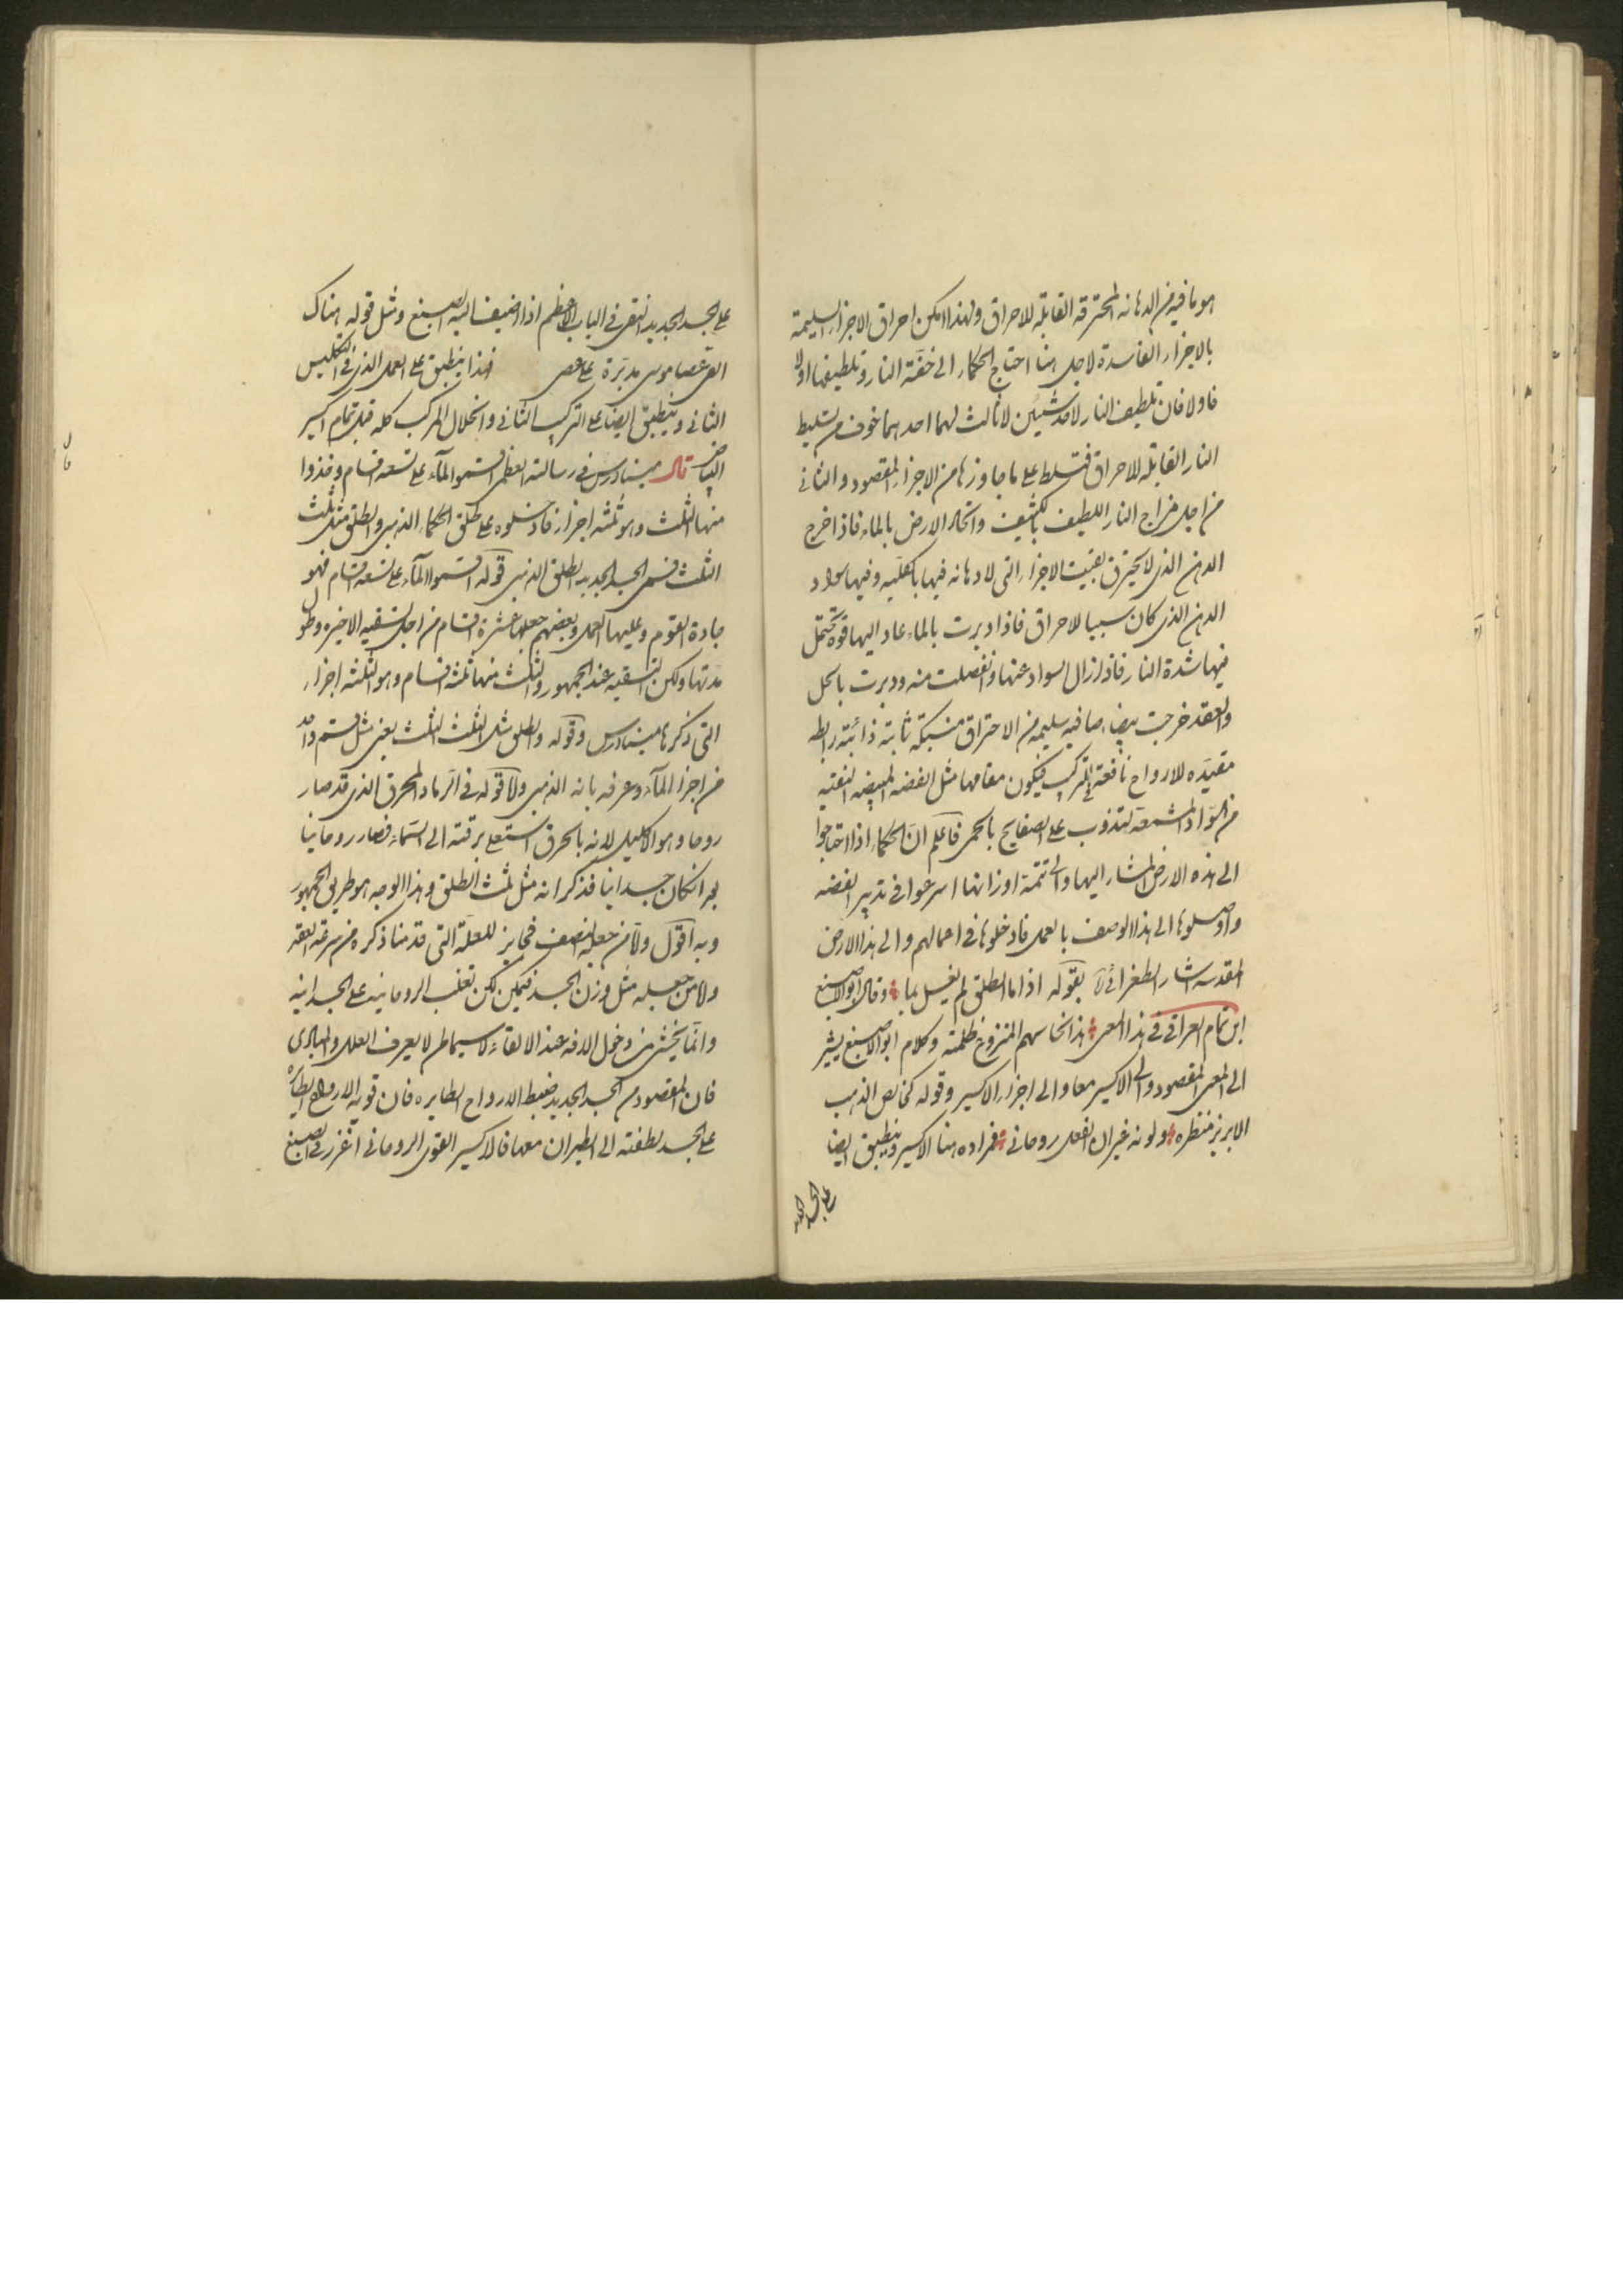 هو ما فيه من الدهانه المحترقه القابله للاحراق ولهذا لا يمكن احراق الاجزاء السليمة
بالاجزاء الفاسدة لاجل هذا احتاج الحكماء الى خفة النار وتلطيفها اولا
فاولا فان تلطيف النار لاحد شيئين لا ثالث لهما احدهما خوف من تسليط
النار القابله للاحراق فتسلط على ما جاوزها من الاجزاء المقصود والثانى
من اجل مزاج النار اللطيف بالكثيف واتحاد الارض بالماء فاذا خرج
الدهن الذى لا يحترق بقيت الاجزاء التى لا دهانه فيها بالكليه وفيها سواد
الدهن الذى كان سببا للاحراق فاذا دبرت بالماء عاد اليها قوة تحتمل
فيها شدة النار فاذا زال السواد عنها وانفصلت منه ودبرت بالحل
والعقد خرجت بيضاء صافيه سليمه من الاحتراق مشبكة ثابتة ذائبة رابطه
مقيده للارواح نافعة فى التركيب فيكون مقامها مثل الفضه المبيضه النقيه
من السواد المشمعة لتذوب على الصفايح بالحمى فاعلم ان الحكماء اذا احتاجوا
الى هذه الارض المشار اليها والى تتمة اوزانها اسرعوا فى تدبير الفضه
واوصلوها الى هذا الوصف بالعمل فادخلوها فى اعمالهم والى هذا الارض
المقدسه اشار الطغرائى بقوله اذا ما الطلق لم يغسل بما وقال ابو الاصبع
ابن تمام العراقى فى هذا المعنى هذا نحاسهم المنزوع ظلمته وكلام ابو الاصبع يشير
الى المعنى المقصود والى الاكسير معا والى اجزاء الاكسير وقوله كخالص الذهب
الابريز منظره ولونه غير ان الفعل روحانى فمراده هنا الاكسير وينطبق ايضا
على الجسد الجديد
على الجسد الجديد النقى فى الباب الاعظم اذا اضيف اليه الصبغ ومثل قوله هناك
القى عصا موسى مدبرة على عصى فهذا ينطبق على العمل الذى فى التكليس
الثانى وينطبق ايضا على التركيب الثانى وانحلال المركب كله قبل تمام اكسير
البياض قال ميناورس فى رسالته العظمى اقسموا المآء على تسعة اقسام وخذوا
منها الثلث وهو ثلثه اجزاء فادخلوه على طلق الحكماء الذهبى والطلق مثل ثلث
الثلث فسمى الجسد الجديد الطلق الذهبى قوله اقسموا المآء على تسعه اقسام فهو
جادة القوم وعليها العمل وبعضهم جعلها عشرة اقسام من اجل تسقيه الاخيره وطول
مدتها ولكن التسقيه عند الجمهور والثلث منها ثلثه اقسام وهو الثلثه اجزاء
التى ذكرها ميناورس وقوله والطلق مثل الثلث الثلث يعنى مثل قسم واحد
من اجزاء المآء وعرفه بانه الذهبى ولا قوله فى الرماد المحرق الذى قد صار
روحا وهو الاكليل لانه بالحرق استعلى برقته الى السماء فصار روحانيا
بعد ان كان جسدانيا فذكر انه مثل ثلث الطلق وهذا الوجه هو طريق الجمهور
وبه اقول ولا من جعله لنصف فجايز للعلة التى قدمنا ذكره من سرعة العقد
ولا من جعله مثل وزن الجسد فيمكن لكن تغلب الروحانيه على الجسدانيه
وانما يخشى من دخول الافه عند الالقاء لا سيما لمن لا يعرف العلل والمبادى
فان المقصود من الجسد الجديد ضبط الارواح الطايره فان قويت الارواح الطايره
على الجسد لطفته الى الطيران معها فالاكسير القوى الروحانى اغزر فى الصبغ